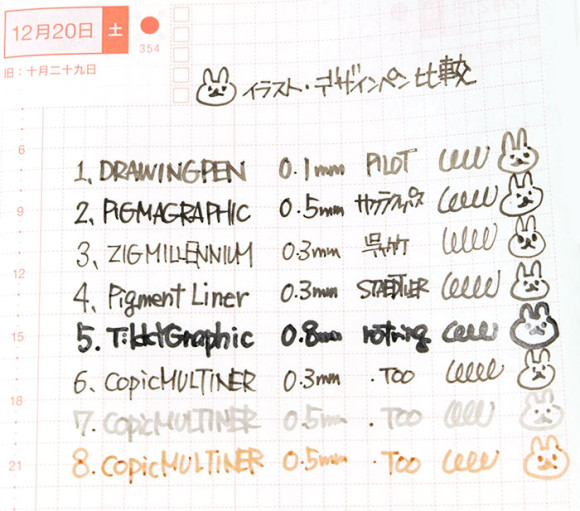 12月20日 土
354
旧：十月二十九日
イラスト・デザインペン比較
6
1. DRAWINGPEN 0.1mm PILOT
9
2. PiGMAGRAPHIC 0.5mm サクラクレパス
3. ZIGMILLENNIUM 0.3mm 呉竹
12
4. Pigment Liner 0.3mm STAEDTLER
15
5. TikkyGraphic 0.8mm rotring
6. CopicMULTINER 0.3mm .Too
18
7. CopicMULTINER 0.5mm .Too
21
8. CopicMULTINER 0.5mm .Too